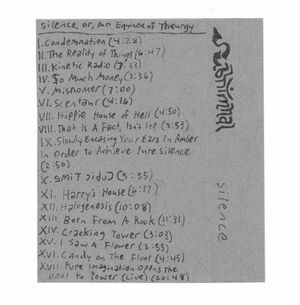 Silence, or, An Equinox of Theurgy
I. Condemnation (4:28)
II. The Reality of Things (6:47)
III. Kinetic Radio (7:33)
IV. So Much Money (3:36)
V. Misnomer (7:00)
VI. Scentaur (4:16)
VII. Hippie House of Hell (4:50)
VIII. That Is A Fact, Isn't It? (3:53)
IX. Slowly Encasing Your Ears In Amber
In Order To Achieve Pure Silence
(2:50)
X. (5:35)
XI. Harry's House (6:17)
XII. Halogenesis (10:08)
XIII. Born From A Rock (11:31)
XIV. Cracking Tower (3:03)
XV. I Saw A Flower (3:55)
XVI. Candy on the Floor (4:45)
XVII. Pure Imagination Opens the
Door to Power (Live) (20:48)
silence